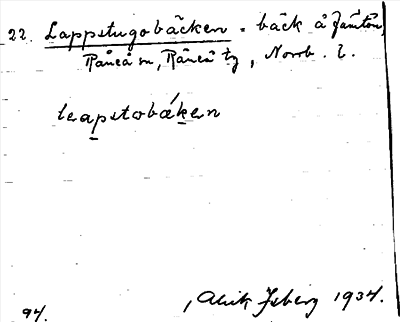 22. Lappstugobäcken. bäck å Jämtön,
Råneå sn, Råneå tg, Norrb. l.
leapstobǻken
94.
Alrik Isberg 1934.